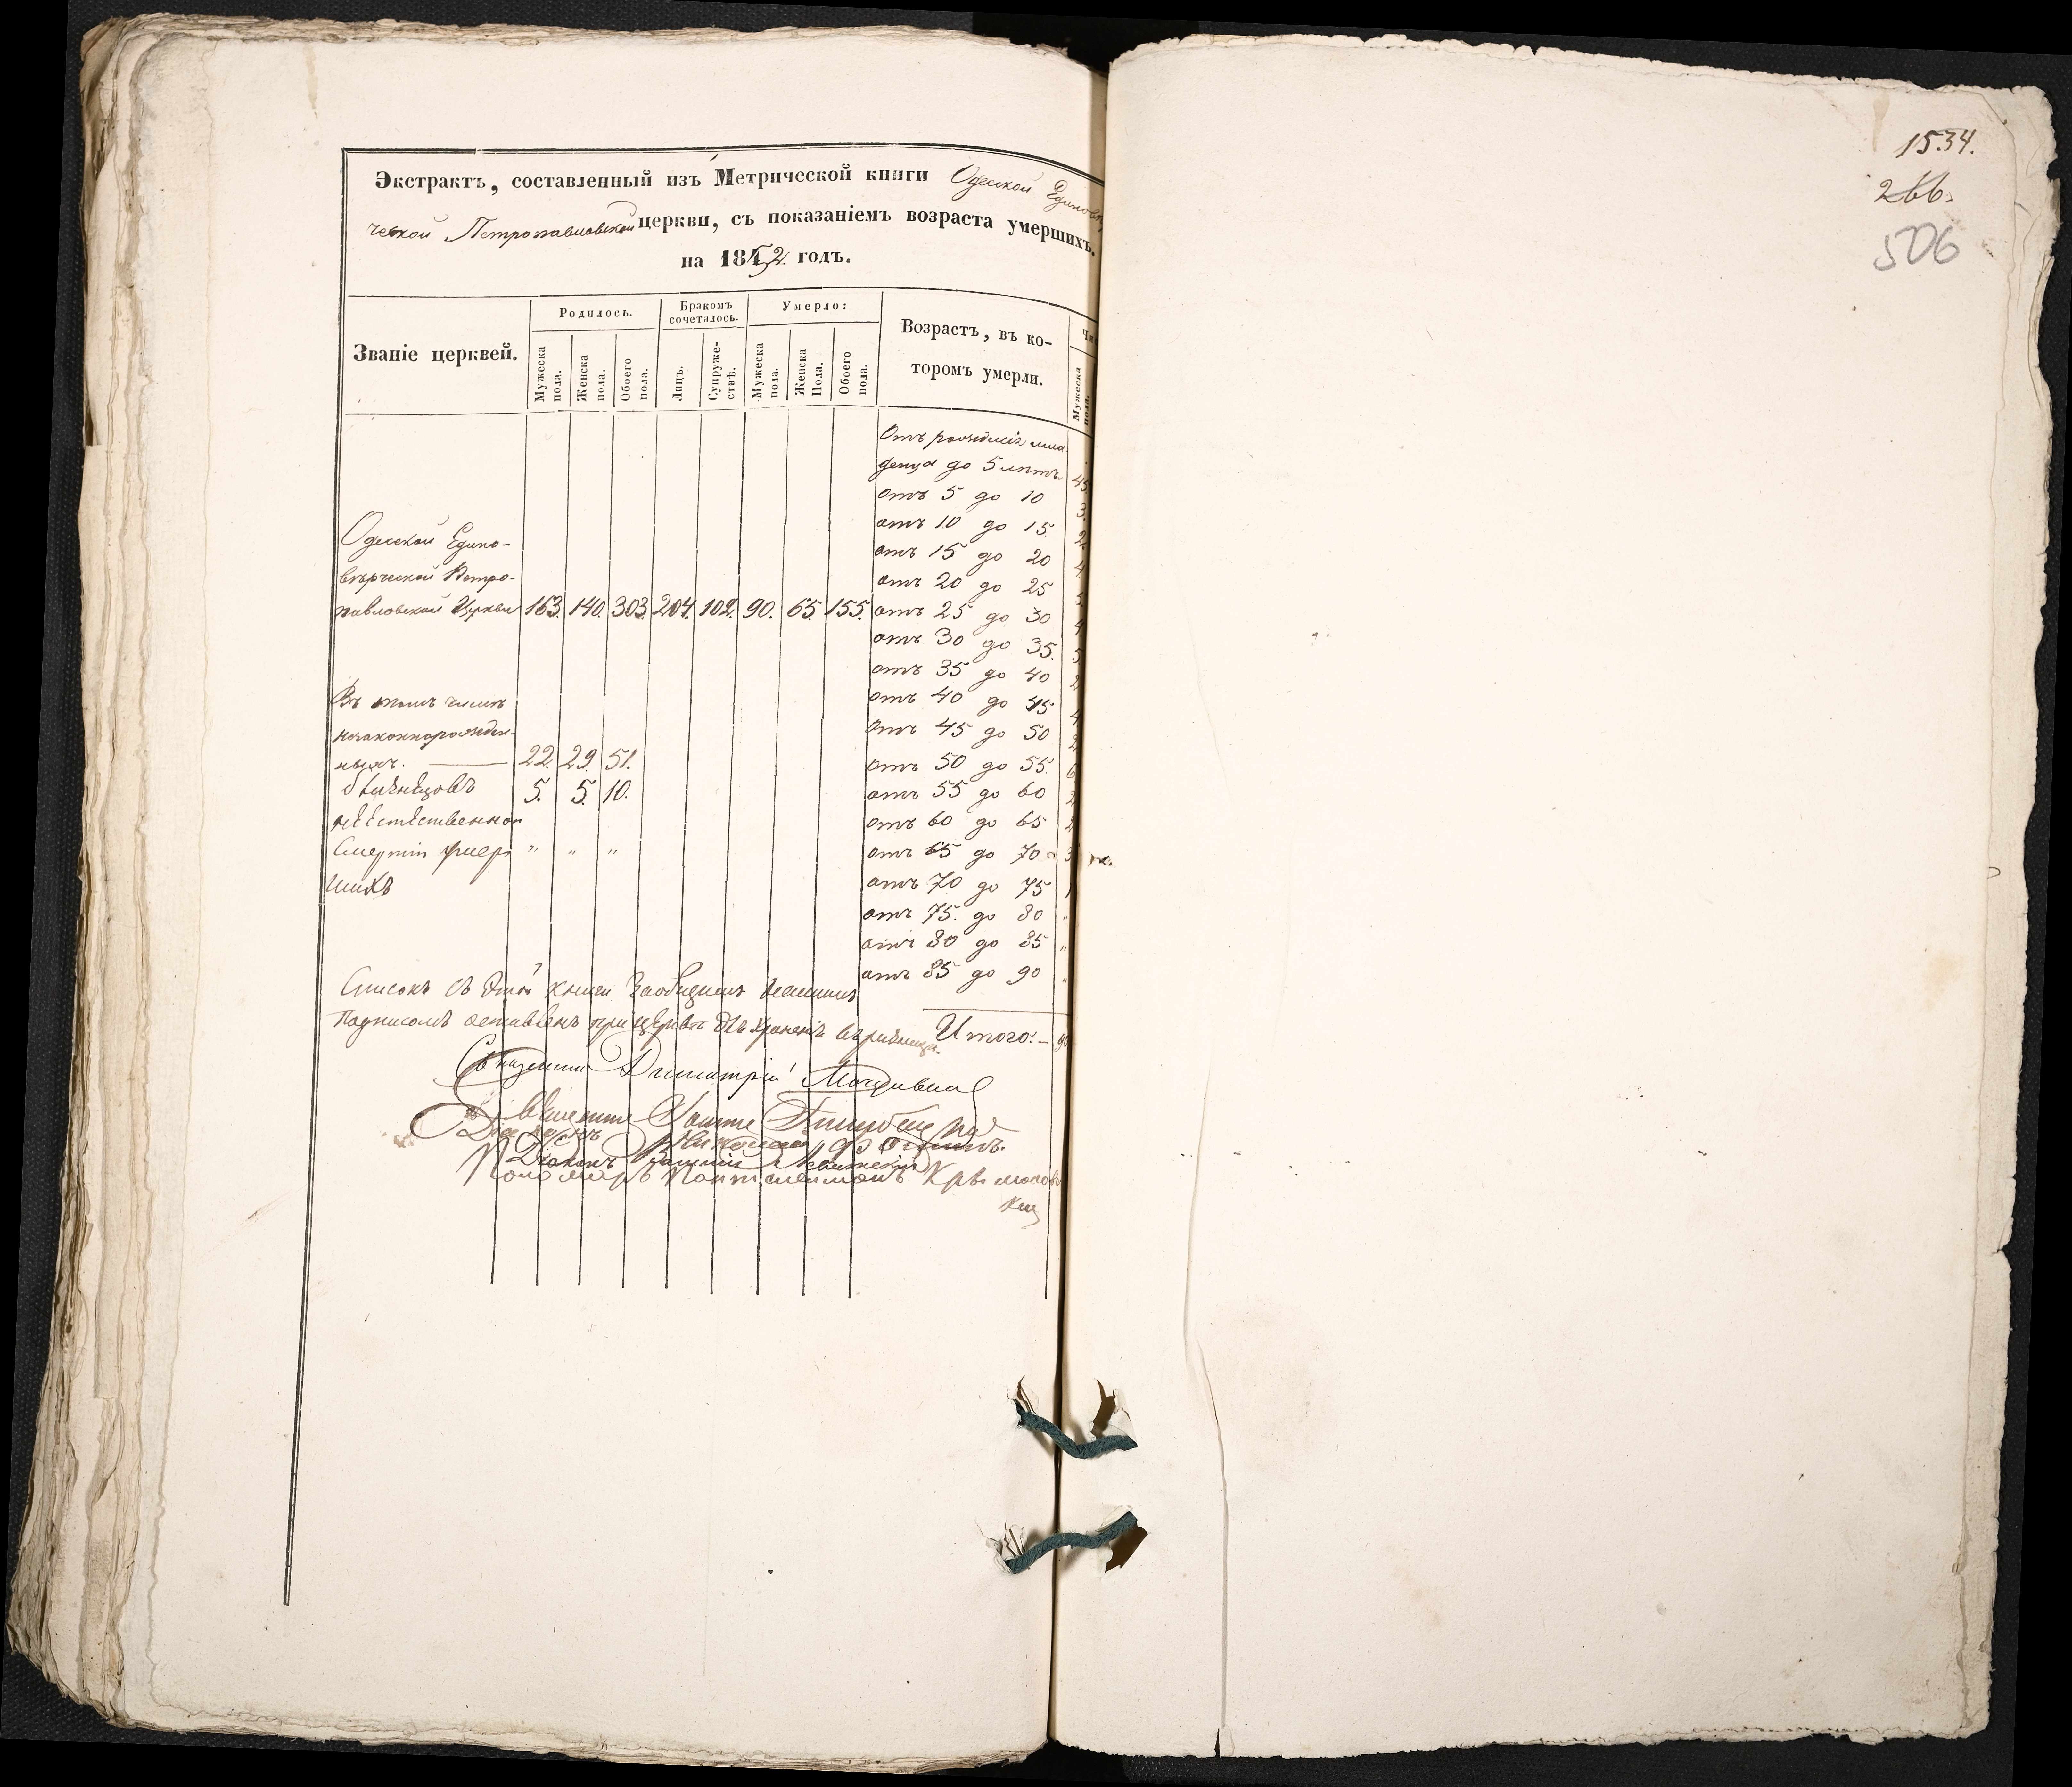 Экстрактъ, составленный изъ Метрической книги Одесской Единовѣр
ческой Петропавловской церкви, съ показаніемъ возраста умершихъ.
на 1852. годъ.
Званіе церквей.
Родилось.
Мужеска пола.
Женска пола.
Обоего пола.
Бракомъ сочеталось.
Лицъ.
Супружествъ.
Умерло:
Мужеска пола.
Женска Пола.
Обоего пола.
Возрастъ, въ ко-
торомъ умерли.
Мужеска пола.
Отъ рожденія мла
денца до 5 лѣтъ 45
отъ 5 до 10 3
отъ 10 до 15. 2
отъ 15 до 20 4
отъ 20 до 25
отъ 25 до 30 4
отъ 30 до 35.
отъ 35 до 40 2
отъ 40 до 45 4
отъ 45 до 50 2
отъ 50 до 55. 6
отъ 55 до 60 2
отъ 60 до 65 2
отъ 65 до 70 3
отъ 70 до 75 1
отъ 75. до 80 "
отъ 80 до 85 "
отъ 85 до 90 "
Итого: — 90
Одесской Едино-
вѣрческой Петро-
павловской Церкви 163. 140. 303. 204. 102. 90. 65. 155.
Въ томъ числѣ
незаконнорожден-
ныхъ. 22. 29. 51.
близнецовъ 5. 5. 10.
неестественной
Смертію умер " " "
шихъ
Списокъ съ этой книги за общимъ нашимъ
Подписомъ оставленъ при церкви для храненія въ ризницѣ.
Священникъ Димитрій
Николай
Діаконъ
Пономарь Пантелеимонъ
1534.
266.
506